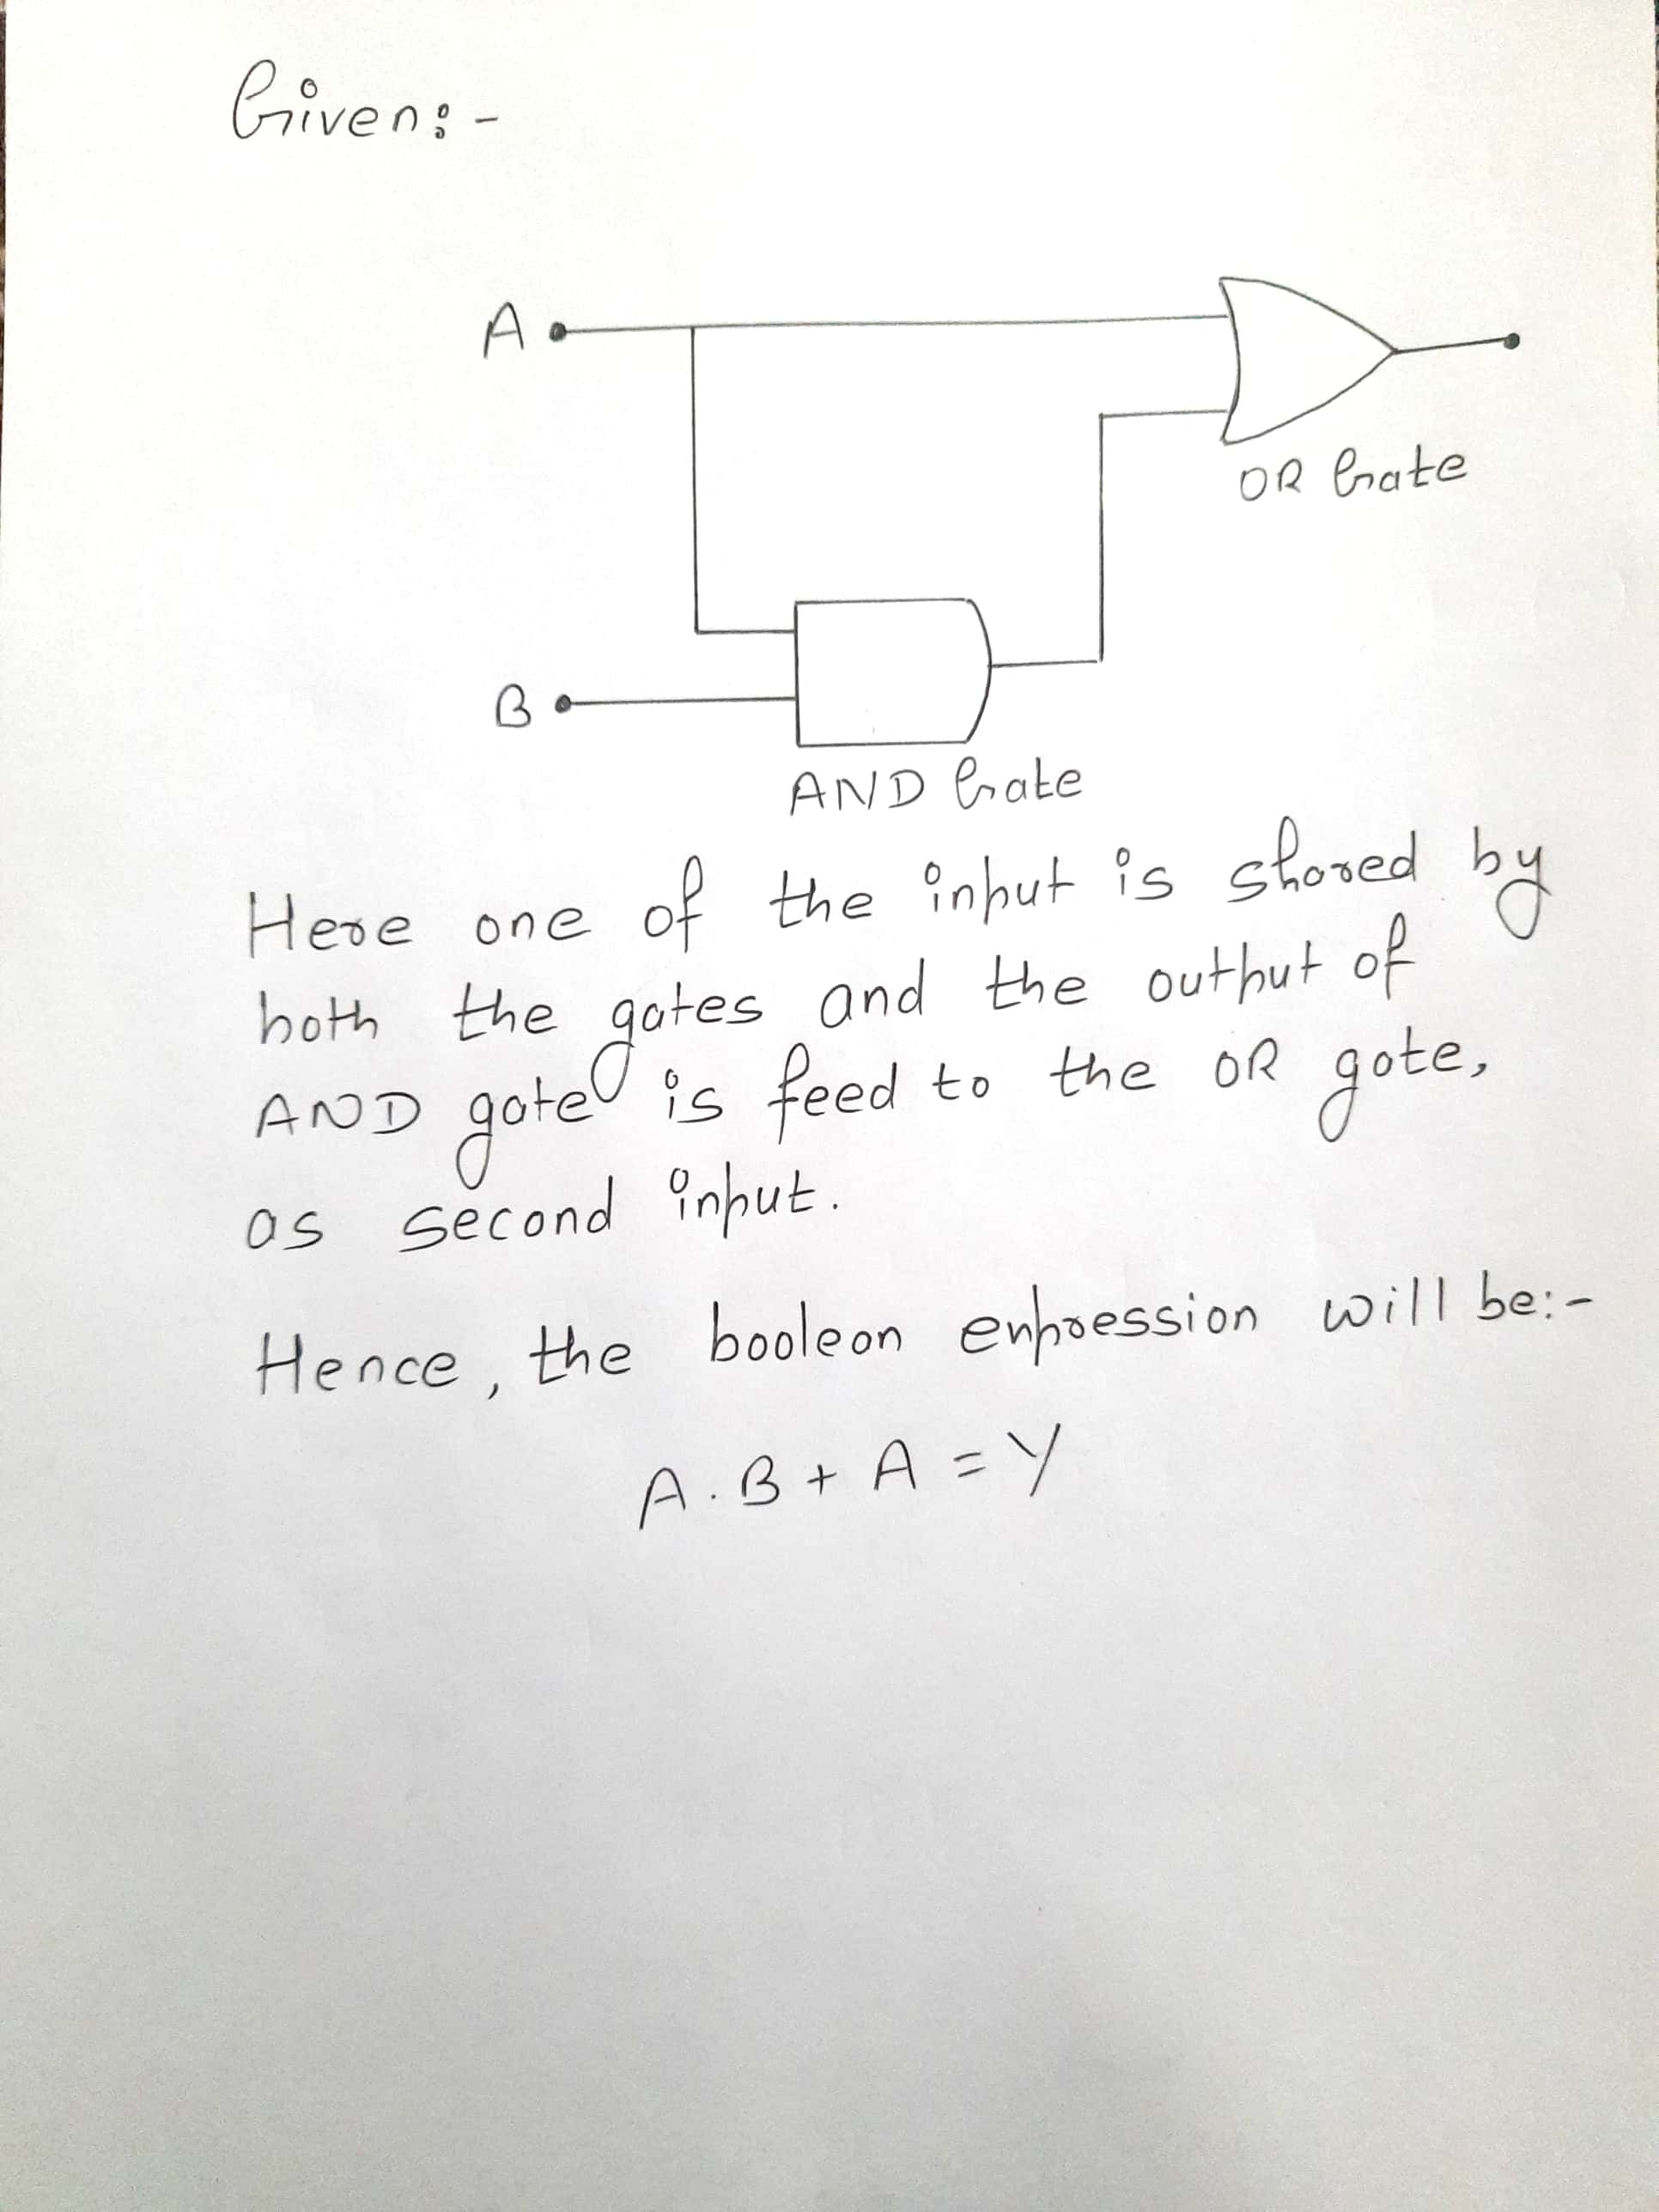 Given:-
A
OR Gate
B
AND Gate
Here one of the input is shared by
both the gates and the output of
AND gate is feed to the OR gate,
as second input.
Hence, the boolean expression will be:-
A.B + A = Y